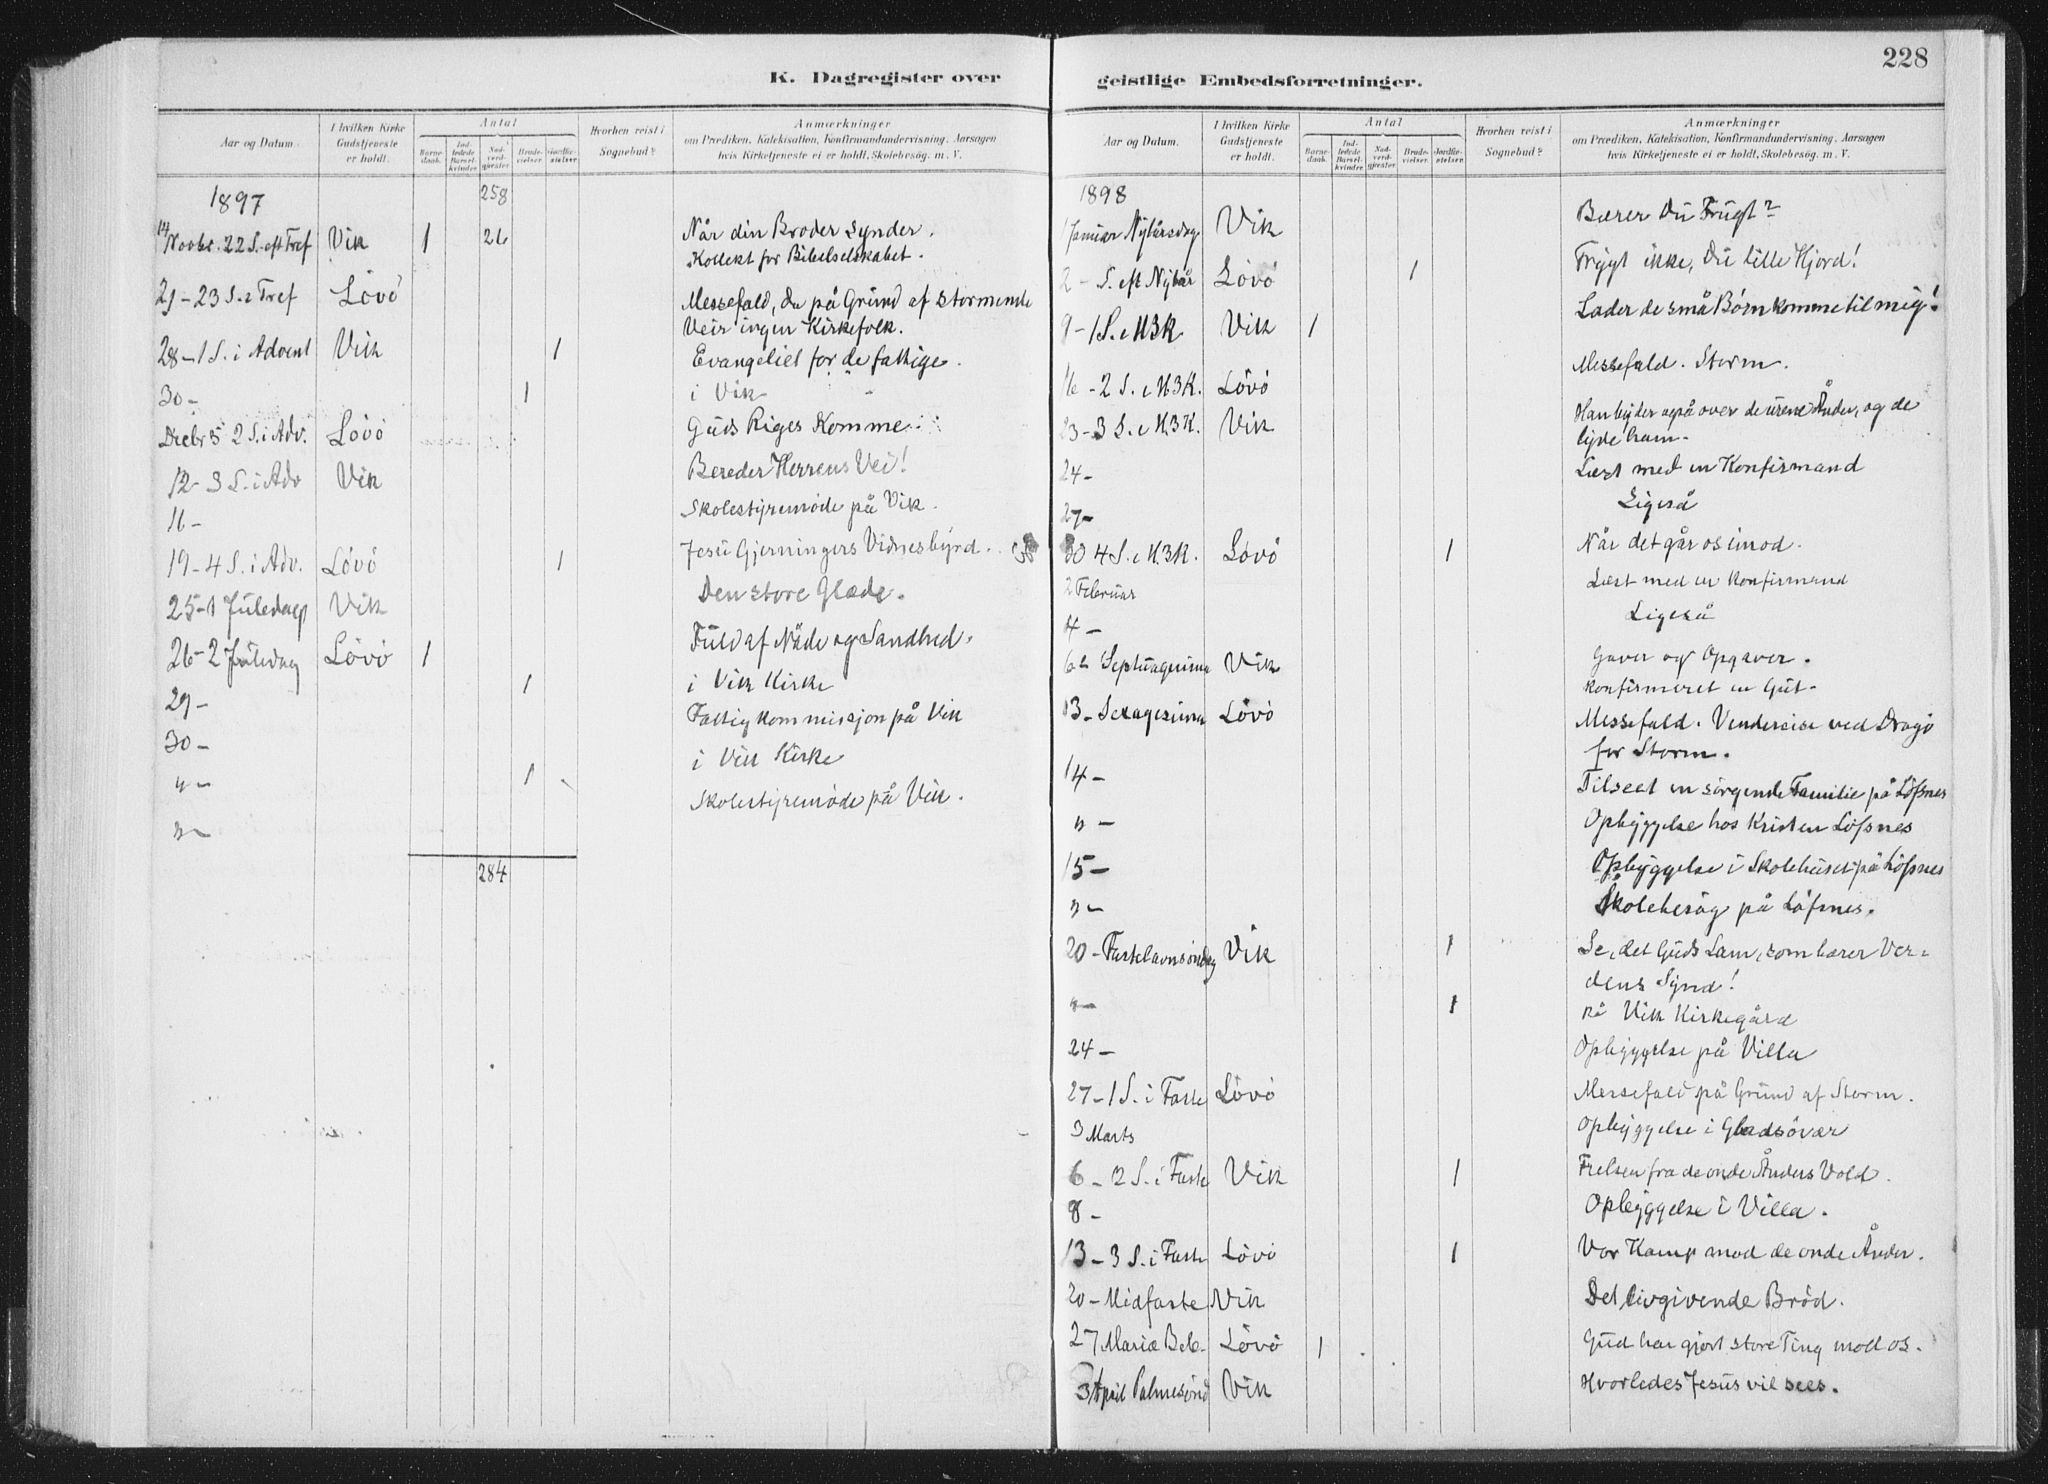 228
K. Dagregister over
geistlige Embedsforretninger.
Aar og Datum.
I hvilken Kirke Gudstjeneste er holdt.
Antal
Barne-daab.
Ind-ledede Barsel-kvinder
Nad-verd-gjester
Brude-vielser.
Jordfæ-stelser.
Hvorhen reist i Sognebud?
Anmærkninger
om Prædiken, Katekisation, Konfirmandundervisning, Aarsagen
hvis Kirketjeneste ei er holdt, Skolebesög. m. V.
1897 258
14 Novbr. 22 S. eft Tref Vik 1 26 Når din Broder synder.
Kollekt for Bibelselskabet.
21 – 23 S. e Tref Lövö Messefald, da på Grund af stormende
Veir ingen Kirkefolk.
28 – 1 S. i Advent Vik 1 Evangeliet for de fattige.
30 – 1 i Vik
Decbr 5 2 S. i Adv. Lövö Guds Riges Komme.
12 – 3 S. i Adv Vik Bereder Herrens Vei!
16 – Skolestyremöde på Vik.
19 – 4 S. i Adv. Lövö 1 Jesu Gjerningers Vidnesbyrd.
25 – 1 Juledag Vik Den store Glæde.
26 – 2 Juledag Lövö 1 Fuld af Nåde og Sandhed.
29 – 1 i Vik Kirke
30 – Fattigkommissjon på Vik
" – 1 i Vik Kirke
" – Skolestyremöde på Vik.
284
Aar og Datum.
I hvilken Kirke Gudstjeneste er holdt.
Antal
Barne-daab.
Ind-ledede Barsel-kvinder
Nad-verd-gjester
Brude-vielser.
Jordfæ-stelser.
Hvorhen reist i Sognebud?
Anmærkninger
om Prædiken, Katekisation, Konfirmandundervisning, Aarsagen
hvis Kirketjeneste ei er holdt, Skolebesög. m. V.
1898
1 Januar Nytårsdag Vik Bærer Du Frugt?
2 – S. eft Nytår Lövö 1 Frygt ikke, Du lille Hjord!
9 – 1 S. e H3K Vik 1 Lader de små Börn komme til mig!
16 – 2 S. e H3K. Lövö Messefald. Storm.
23 – 3 S. e H3K. Vik Han byder også over de urene Ånder, og de
lyde ham.
24 – Læst med en Konfirmand
27 – Ligeså
30 4 S. e H.3K. Lövö 1 Når det går os imod.
2 Februar Læst med en Konfirmand
4 – Ligeså
6 – Septuagesima Vik Gaver og Opgaver.
Konfirmeret en Gut.
13 – Sexagesima Lövö Messefald. Vendereise ved Dragö
for Storm.
14 – Tilseet en sörgende Familie på Löfsnes
" – Opbyggelse hos Kristen Löfsnes
15 – Opbyggelse i Skolehuset på Löfsnes
" – Skolebesög på Löfsnes.
20 – Fastelavnsöndag Vik 1 Se, det Guds Lam, som bærer Ver-
dens Synd!
" – 1 på Vik Kirkegård
24 – Opbyggelse på Villa
27 – 1 S. i Faste Lövö Messefald på Grund af Storm.
3 Marts Opbyggelse i Gladsövær
6 – 2 S. i Faste Vik 1 Frelsen fra de onde Ånders Vold.
8 – Opbyggelse i Villa.
13 – 3 S. i Faste Lövö 1 Vor Kamp mod de onde Ånder.
20 – Midfaste Vik Det livgivende Bröd.
27 Mariæ Beb. Lövö 1 Gud har gjort store Ting mod os.
3 April Palmesönd Vik Hvorledes Jesus vil sees.